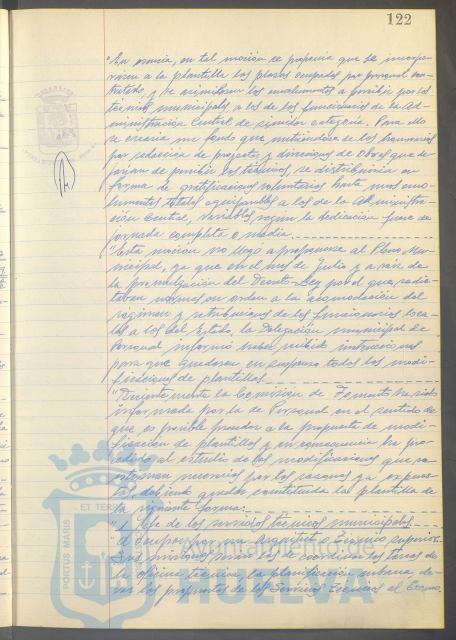 122
"En esencia, en tal moción se proponía que se incorpo-
rasen a la plantilla las plazas ocupadas por personal con-
tratado, y se asimilasen los emolumentos a percibir por los
técnicos municipales a los de los funcionarios de la Ad-
ministración Central de similar categoría. Para ello
se crearía un fondo que nutriéndose de los honorarios
por redacción de proyectos y direcciones de obras que de-
jarían de percibir los técnicos, se distribuiría en
forma de gratificaciones voluntarias hasta unos emo-
lumentos totales equiparables a los de la Administra-
ción Central, variables según la dedicación fuese de
jornada completa o media.
"Esta moción no llegó a proponerse al Pleno Mu-
nicipal, ya que en el mes de Julio y a raíz de
la promulgación del Decreto-Ley por el que se dic-
taban normas en orden a la acomodación del
régimen y retribuciones de los funcionarios loca-
les a los del Estado, la Delegación municipal de
Personal informó haber recibido instrucciones
para que quedasen en suspenso todas las modi-
ficaciones de plantillas.
"Recientemente la Comisión de Fomento ha sido
informada por la de Personal en el sentido de
que es posible proceder a la propuesta de modi-
ficación de plantillas y en consecuencia ha pro-
cedido al estudio de las modificaciones que se
estiman necesarias por las razones ya expues-
tas, debiendo quedar constituida la plantilla de
la siguiente forma:
"1 Jefe de los servicios técnicos municipales.
"A desempeñar por un Arquitecto o Técnico superior.
Sus misiones serán las de coordinar las tareas de
la oficina técnica, la planificación urbana, de-
var las propuestas de los Servicios Técnicos al
PORTUS MARIS
ET TERRAE
Ayuntamiento de
HUELVA